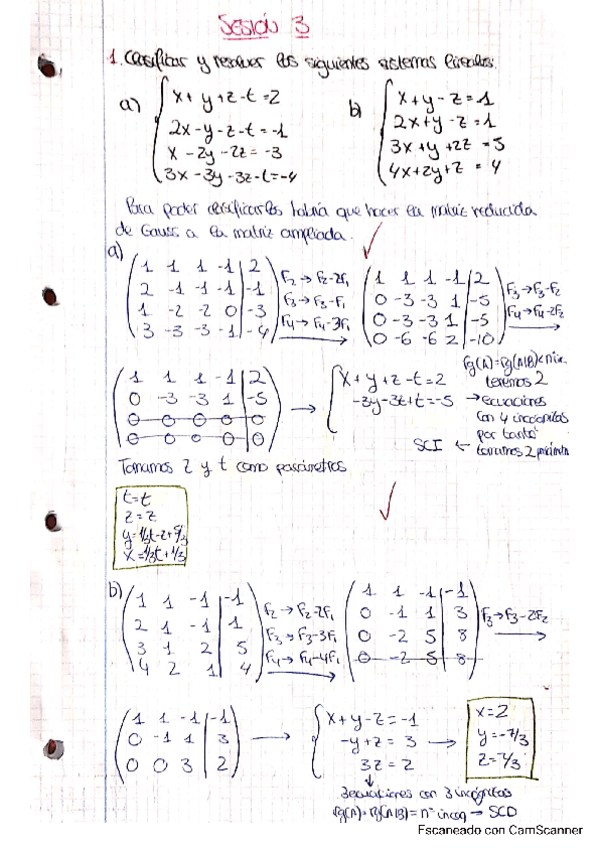 Sesión 3
1. Clasificar y resolver los siguientes sistemas lineales.
a) { x + y + z - t = 2
2x - y - z - t = -1
x - 2y - 2z = -3
3x - 3y - 3z - t = -4
b) { x + y - z = -1
2x + y - z = 1
3x + y + 2z = 5
4x + 2y + z = 4
Para poder clasificarlos habría que hacer la matriz reducida
de Gauss a la matriz ampliada.
a)
( 1 1 1 -1 | 2 )
2 -1 -1 -1 | -1
1 -2 -2 0 | -3
3 -3 -3 -1 | -4
F2 → F2-2F1
F3 → F3-F1
F4 → F4-3F1
( 1 1 1 -1 | 2 )
0 -3 -3 1 | -5
0 -3 -3 1 | -5
0 -6 -6 2 | -10
F3 → F3-F2
F4 → F4-2F2
( 1 1 1 -1 | 2 )
0 -3 -3 1 | -5
0 0 0 0 0
0 0 0 0 0
→ { x + y + z - t = 2
-3y - 3z + t = -5
rg(A) = rg(A|B) < nº inc.
tenemos 2
→ ecuaciones
con 4 incógnitas
por tanto
SCI ← tomamos 2
Tomamos z y t como parámetros
t = t
z = z
y = 1/3t - z + 5/3
x = 2/3t + 1/3
b)
( 1 1 -1 | -1 )
2 1 -1 | 1
3 1 2 | 5
4 2 1 | 4
F2 → F2-2F1
F3 → F3-3F1
F4 → F4-4F1
( 1 1 -1 | -1 )
0 -1 1 | 3
0 -2 5 | 8
0 -2 5 | 8
F3 → F3-2F2
( 1 1 -1 | -1 )
0 -1 1 | 3
0 0 3 | 2
→ { x + y - z = -1
-y + z = 3
3z = 2
→
x = 2
y = -7/3
z = 7/3
3 ecuaciones con 3 incógnitas
rg(A) = rg(A|B) = nº incog → SCD
Escaneado con CamScanner